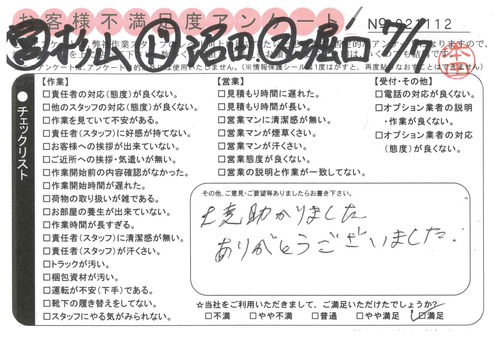 お客様不満足度アンケート
N9 021112
7/7
●チェックリスト
【作業】
□責任者の対応(態度)が良くない。
□他のスタッフの対応(態度)が良くない。
□作業を見ていて不安がある。
□責任者(スタッフ)に好感が持てない。
□お客様への挨拶が出来ていない。
□ご近所への挨拶・気遣いが無い。
□作業開始前の内容確認がなかった。
□作業開始時間が遅れた。
□荷物の取り扱いが雑である。
□お部屋の養生が出来ていない。
□作業時間が長すぎる。
□責任者(スタッフ)に清潔感が無い。
□責任者(スタッフ)が汗くさい。
□トラックが汚い。
□梱包資材が汚い。
□運転が不安(下手)である。
□靴下の履き替えをしてない。
□スタッフにやる気がみられない。
【営業】
□見積もり時間に遅れた。
□見積もり時間が長い。
□営業マンに清潔感が無い。
□営業マンが煙草くさい。
□営業マンが汗くさい。
□営業態度が良くない。
□営業の説明と作業が一致してない。
【受付・その他】
□電話の対応が良くない。
□オプション業者の説明
・作業が良くない。
□オプション業者の対応
(態度)が良くない。
その他、ご意見・ご要望等ありましたらお書き下さい。
大変助かりました
ありがとうございました.
☆当社をご利用いただきまして、ご満足いただけたでしょうか?
□不満 □やや不満 □普通 □やや満足 □満足